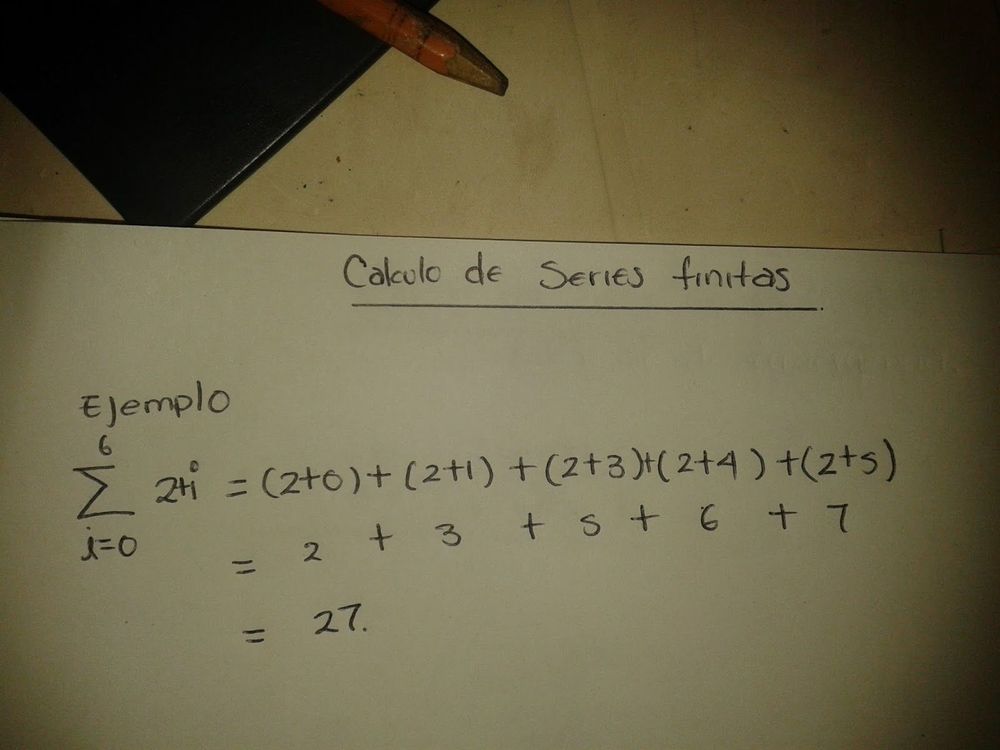 Calculo de Series finitas
Ejemplo
6
∑ 2+i = (2+0)+(2+1)+(2+3)+(2+4)+(2+5)
i=0
= 2 + 3 + 5 + 6 + 7
= 27.